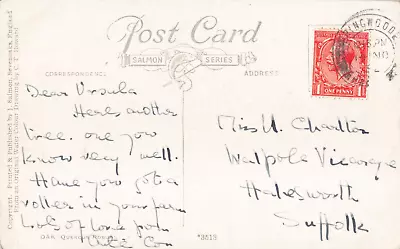 Post Card
SALMON SERIES
CORRESPONDENCE.
ADDRESS.
Copyright. Printed & Published by J. Salmon, Sevenoaks, England.
From an Original Water Colour Drawing by
Dear Ursula
Heres another
tree. one you
know very well.
Have you got a
roller in your farm
Lots of love from
OAK
*3513
Miss U. Charlton
Walpole Vicarage
Halesworth
Suffolk
ONE PENNY